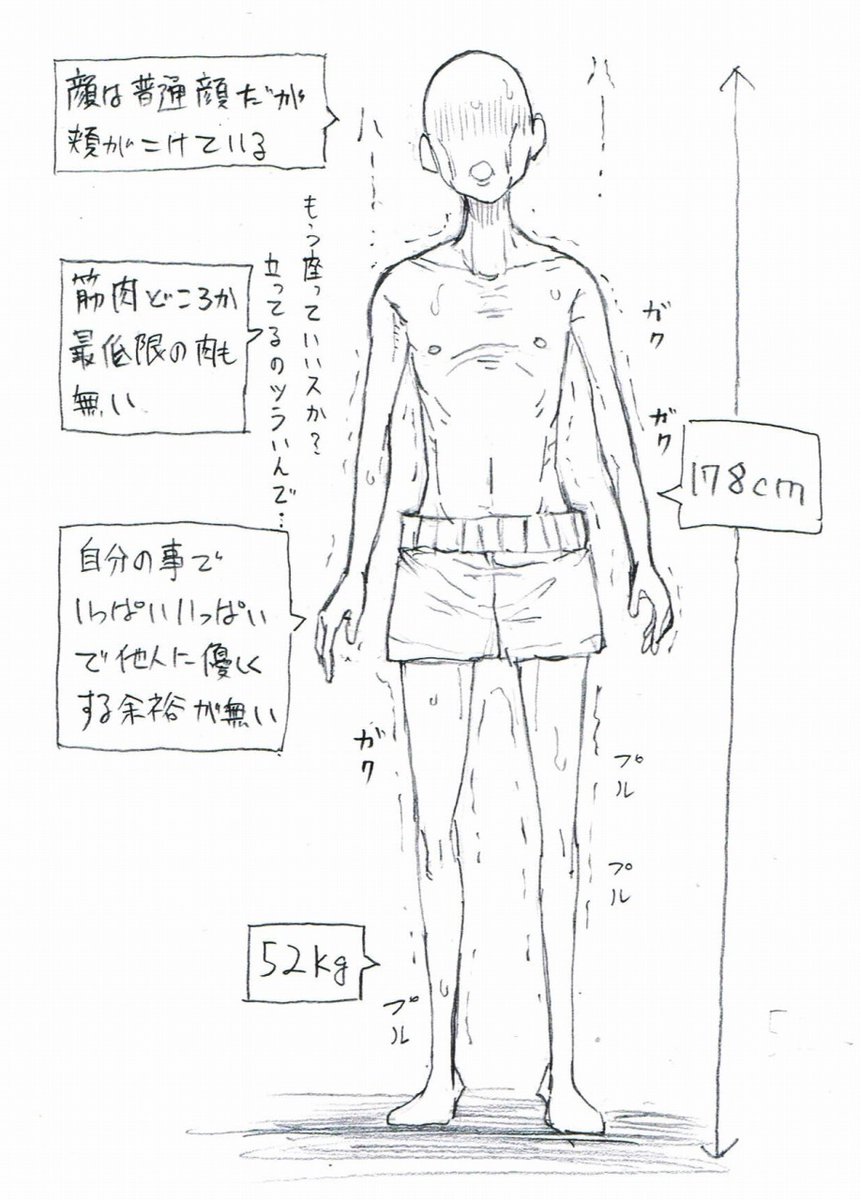 顔は普通顔だが
頬がこけている
ハー
ハ
もう座っていいスか?
立ってるのツラいんで…
筋肉どころか
最低限の肉も
無い
ガク
ガク
178cm
自分の事で
いっぱいいっぱい
で他人に優しく
する余裕が無い
ガク
プル
プル
52kg
プル